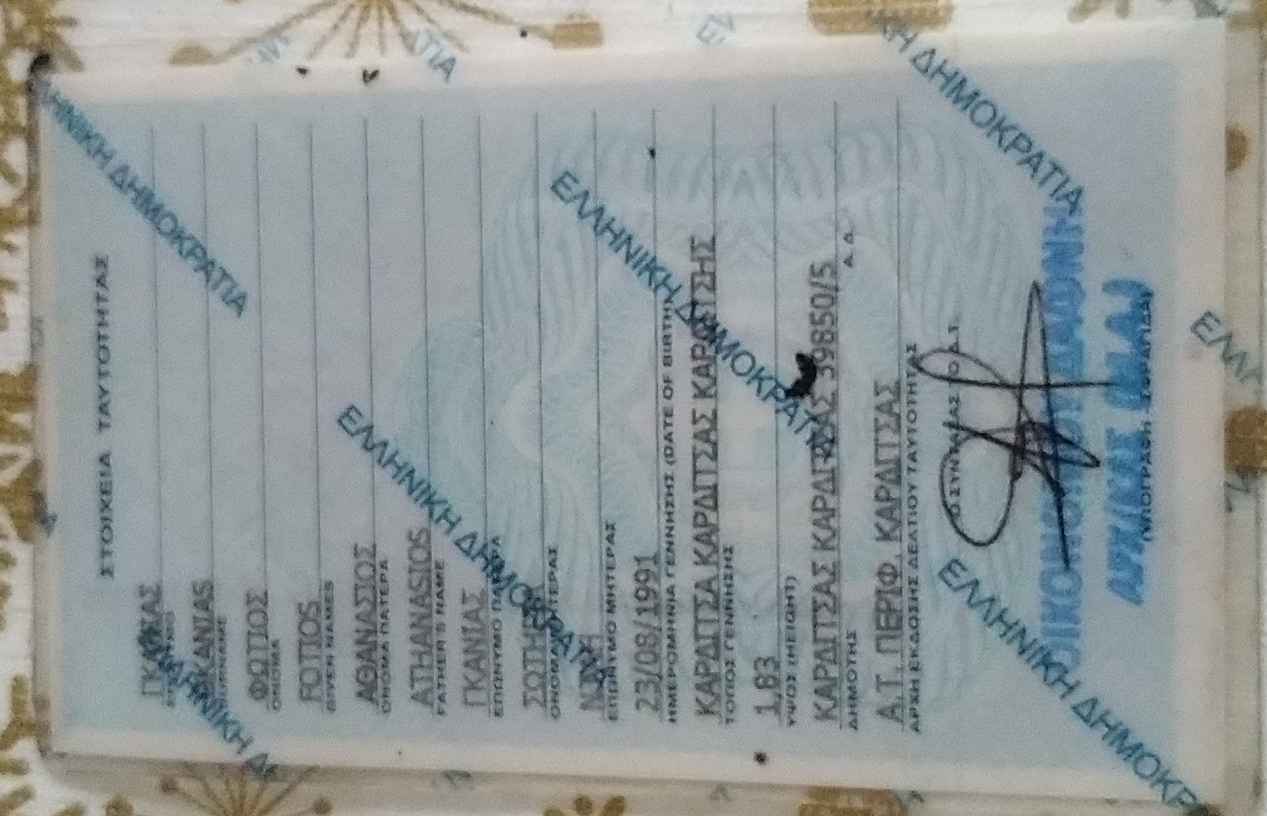 ΣΤΟΙΧΕΙΑ ΤΑΥΤΟΤΗΤΑΣ
ΓΚΑΝΙΑΣ
GKANIAS
SURNAME
ΦΩΤΙΟΣ
ΟΝΟΜΑ
FOTIOS
GIVEN NAMES
ΑΘΑΝΑΣΙΟΣ
ΟΝΟΜΑ ΠΑΤΕΡΑ
ATHANASIOS
FATHER'S NAME
ΓΚΑΝΙΑΣ
ΕΠΩΝΥΜΟ ΠΑΤΕΡΑ
ΟΝΟΜΑ ΜΗΤΕΡΑΣ
ΕΠΩΝΥΜΟ ΜΗΤΕΡΑΣ
23/08/1991
ΗΜΕΡΟΜΗΝΙΑ ΓΕΝΝΗΣΗΣ (DATE OF BIRTH)
ΚΑΡΔΙΤΣΑ ΚΑΡΔΙΤΣΑΣ ΚΑΡΔΙΤΣΗΣ
ΤΟΠΟΣ ΓΕΝΝΗΣΗΣ
1,83
ΥΨΟΣ (HEIGHT)
ΚΑΡΔΙΤΣΑΣ ΚΑΡΔΙΤΣΑΣ 39850/5
ΔΗΜΟΤΗΣ Α. Δ.
Α.Τ. ΠΕΡΙΦ. ΚΑΡΔΙΤΣΑΣ
ΑΡΧΗ ΕΚΔΟΣΗΣ ΔΕΛΤΙΟΥ ΤΑΥΤΟΤΗΤΑΣ
Ο ΣΥΝΤΑΞΑΣ ΤΟ Δ.Τ.
(ΥΠΟΓΡΑΦΗ - ΣΦΡΑΓΙΔΑ)
ΕΛΛΗΝΙΚΗ ΔΗΜΟΚΡΑΤΙΑ
ΕΛΛΗΝΙΚΗ ΔΗΜΟΚΡΑΤΙΑ
ΕΛΛΗΝΙΚΗ ΔΗΜΟΚΡΑΤΙΑ
ΕΛΛΗΝΙΚΗ ΔΗΜΟΚΡ